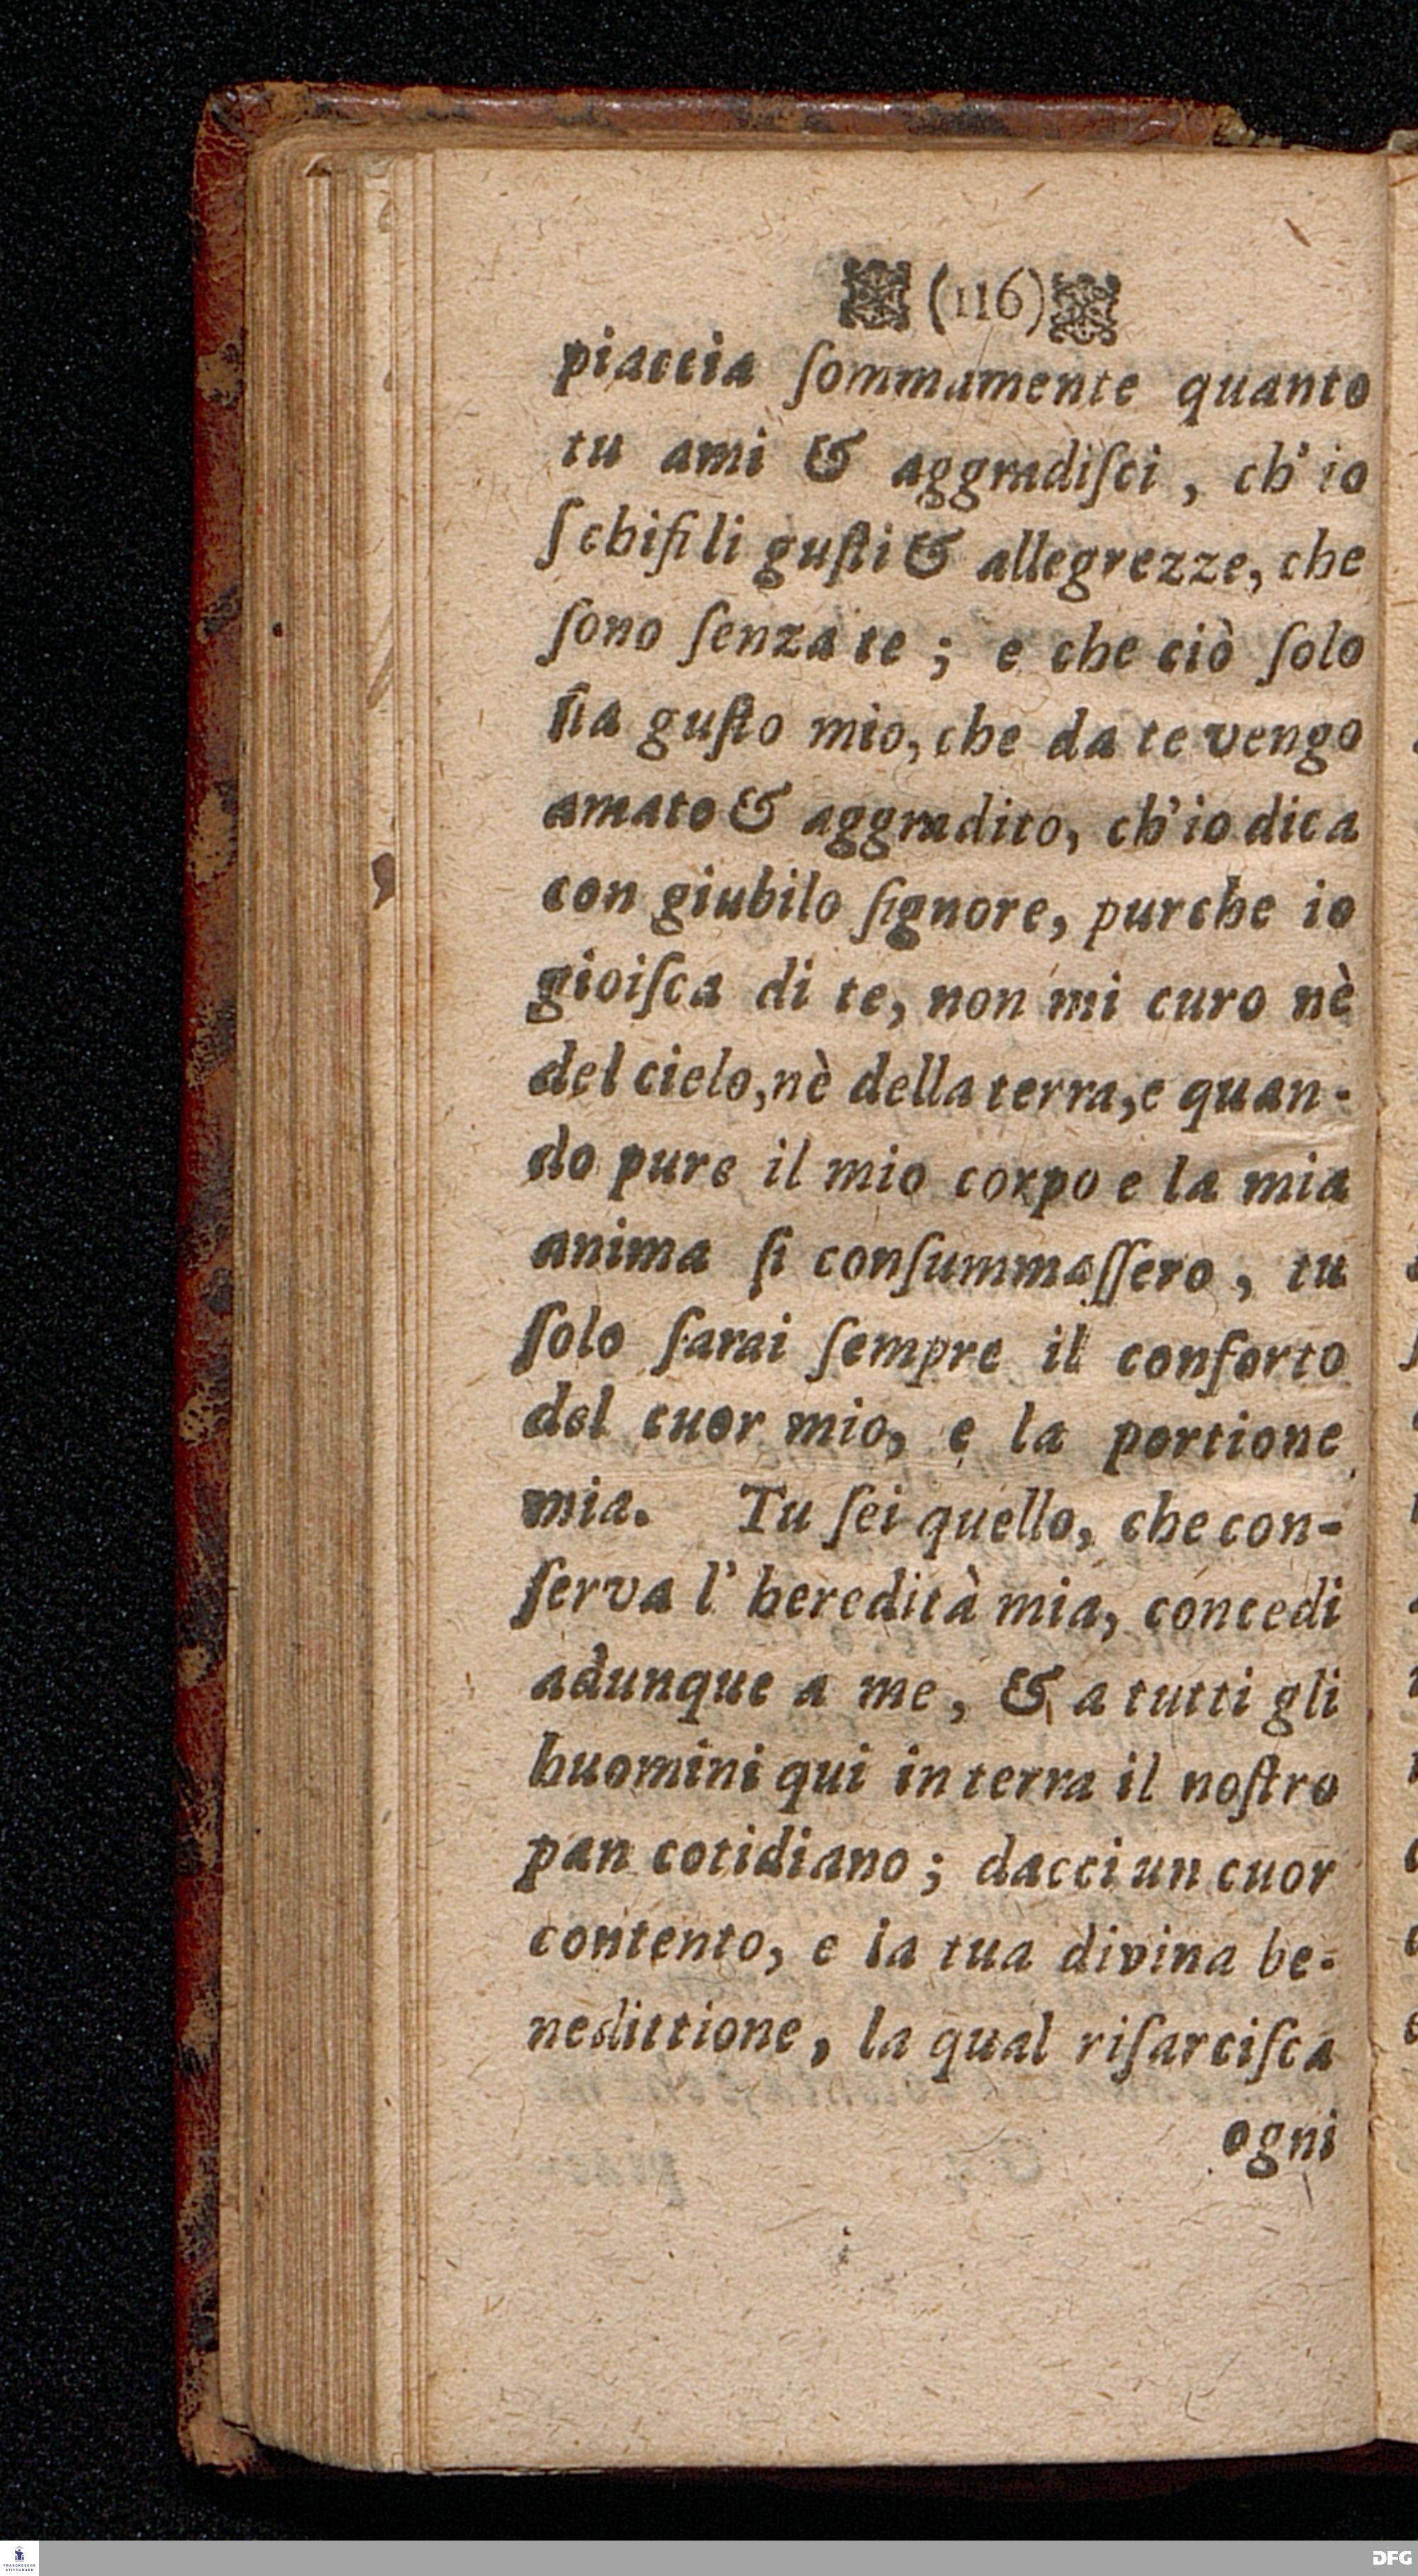 (116)
piaccia ſommamente quanto
tu ami & aggradiſci, ch' io
ſchifi li guſti & allegrezze, che
ſono ſenza te; e che ciò ſolo
ſia guſto mio, che da te vengo
amato & aggradito, ch'io dica
con giubilo ſignore, purche io
gioiſca di te, non mi curo nè
del cielo, nè della terra, e quan-
do pure il mio corpo e la mia
anima ſi conſummaſſero, tu
ſolo ſarai ſempre il conforto
del cuor mio, e la portione
mia. Tu ſei quello, che con-
ſerva l' heredità mia, concedi
adunque a me, & a tutti gli
huomini qui in terra il noſtro
pan cotidiano; dacci un cuor
contento, e la tua divina be-
nedittione, la qual riſarciſca
ogni
DFG